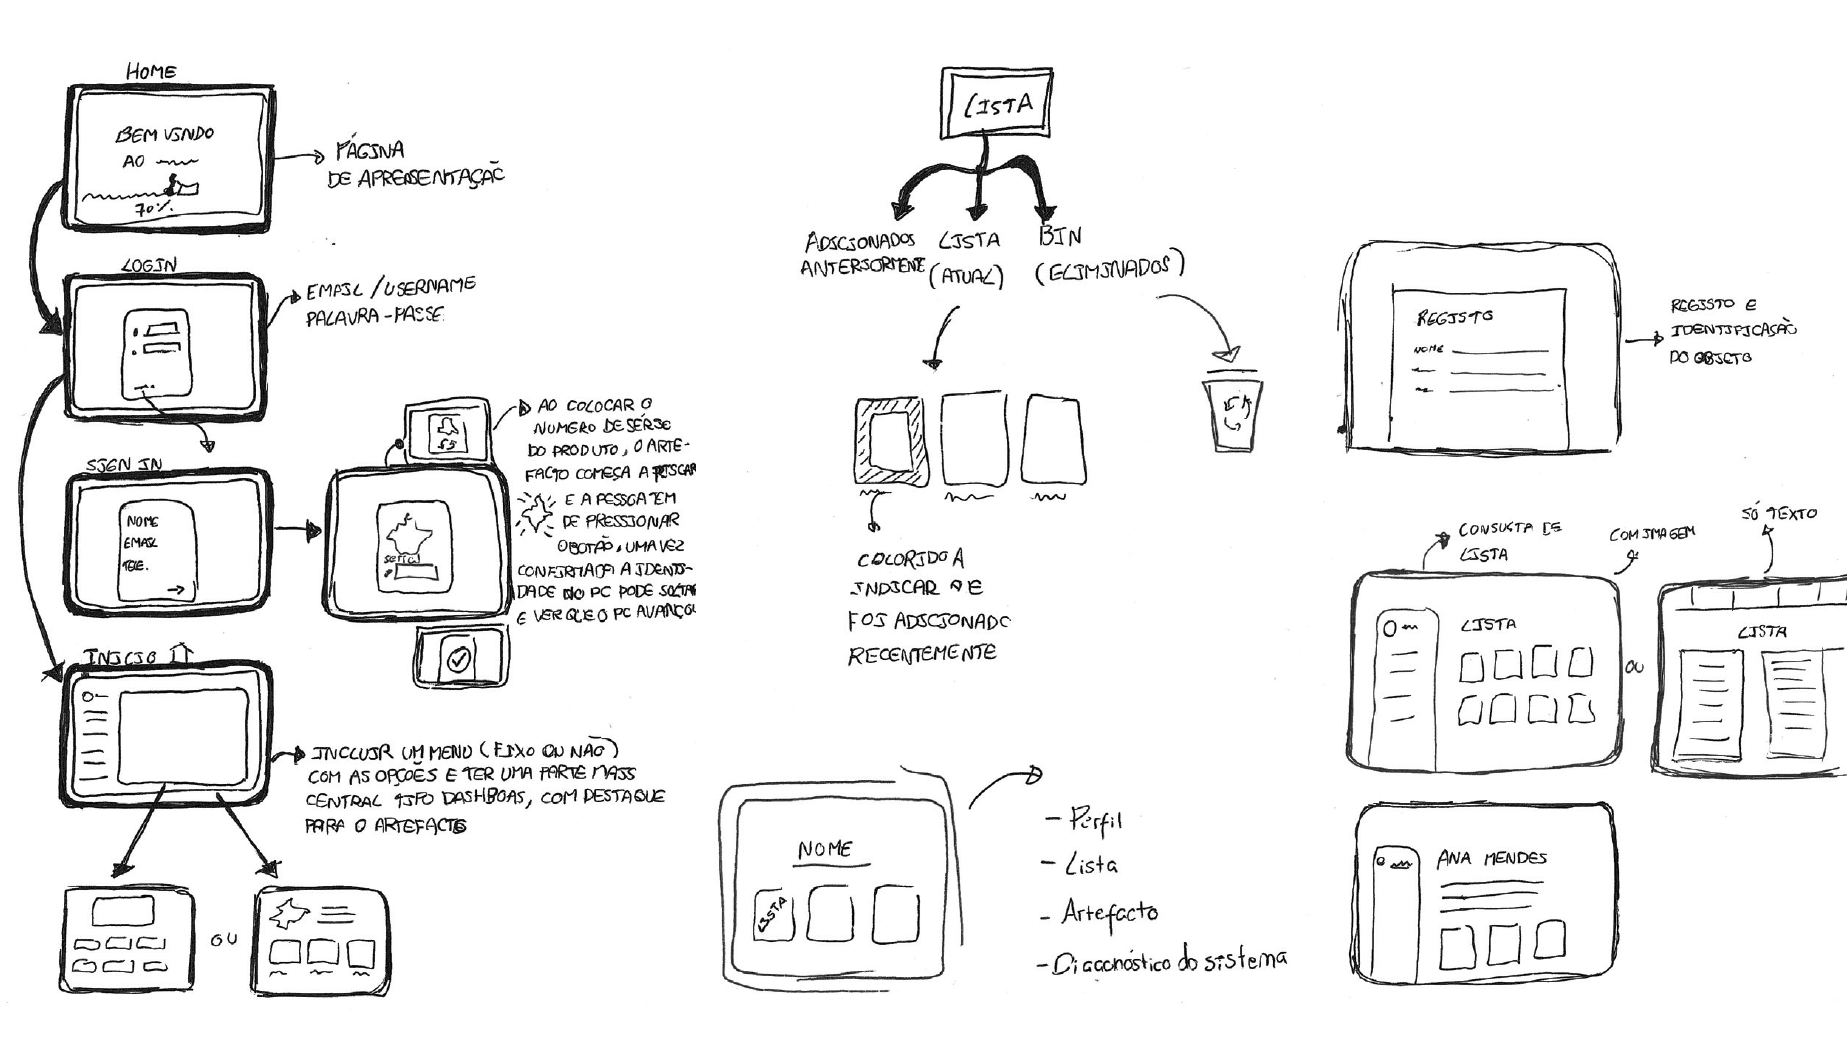 HOME
BEM VINDO
AO
70%
PÁGINA
DE APRESENTAÇÃO
LOGIN
EMAIL / USERNAME
PALAVRA-PASSE
SIGN IN
NOME
EMAIL
TELE.
SERIAL
AO COLOCAR O
NUMERO DE SÉRIE
DO PRODUTO, O ARTE-
FACTO COMEÇA A PISCAR
E A PESSOA TEM
DE PRESSIONAR
O BOTÃO, UMA VEZ
CONFIRMADO A IDENTI-
DADE NO PC PODE SOLTAR
E VER QUE O PC AVANÇOU
INICIO
INCLUIR UM MENU (FIXO OU NÃO)
COM AS OPÇÕES E TER UMA PARTE MAIS
CENTRAL TIPO DASHBOAS, COM DESTAQUE
PARA O ARTEFACTO
OU
LISTA
ADICIONADOS
ANTERIORMENTE
LISTA
(ATUAL)
BIN
(ELIMINADOS)
COLORIDO A
INDICAR QE
FOI ADICIONADO
RECENTEMENTE
NOME
LISTA
- Perfil
- Lista
- Artefacto
- Diagnóstico do sistema
REGISTO
NOME
REGISTO E
IDENTIFICAÇÃO
DO OBJETO
CONSULTA DE
LISTA
COM IMAGEM
SÓ TEXTO
LISTA
OU
LISTA
ANA MENDES